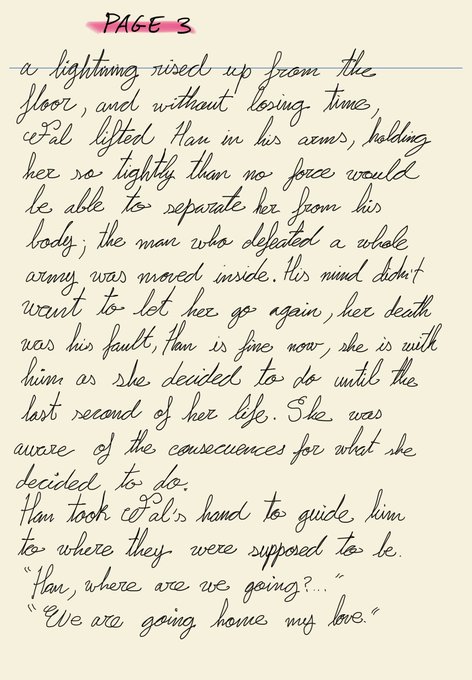 PAGE 3
a lightning rised up from the
floor, and without losing time,
Pal lifted Han in his arms, holding
her so tightly than no force would
be able to separate her from his
body; the man who defeated a whole
army was moved inside. His mind didn't
want to let her go again, her death
was his fault, Han is fine now, she is with
him as she decided to do until the
last second of her life. She was
aware of the consecuences for what she
decided to do.
Han took Pal's hand to guide him
to where they were supposed to be.
"Han, where are we going?..."
"We are going home my love."